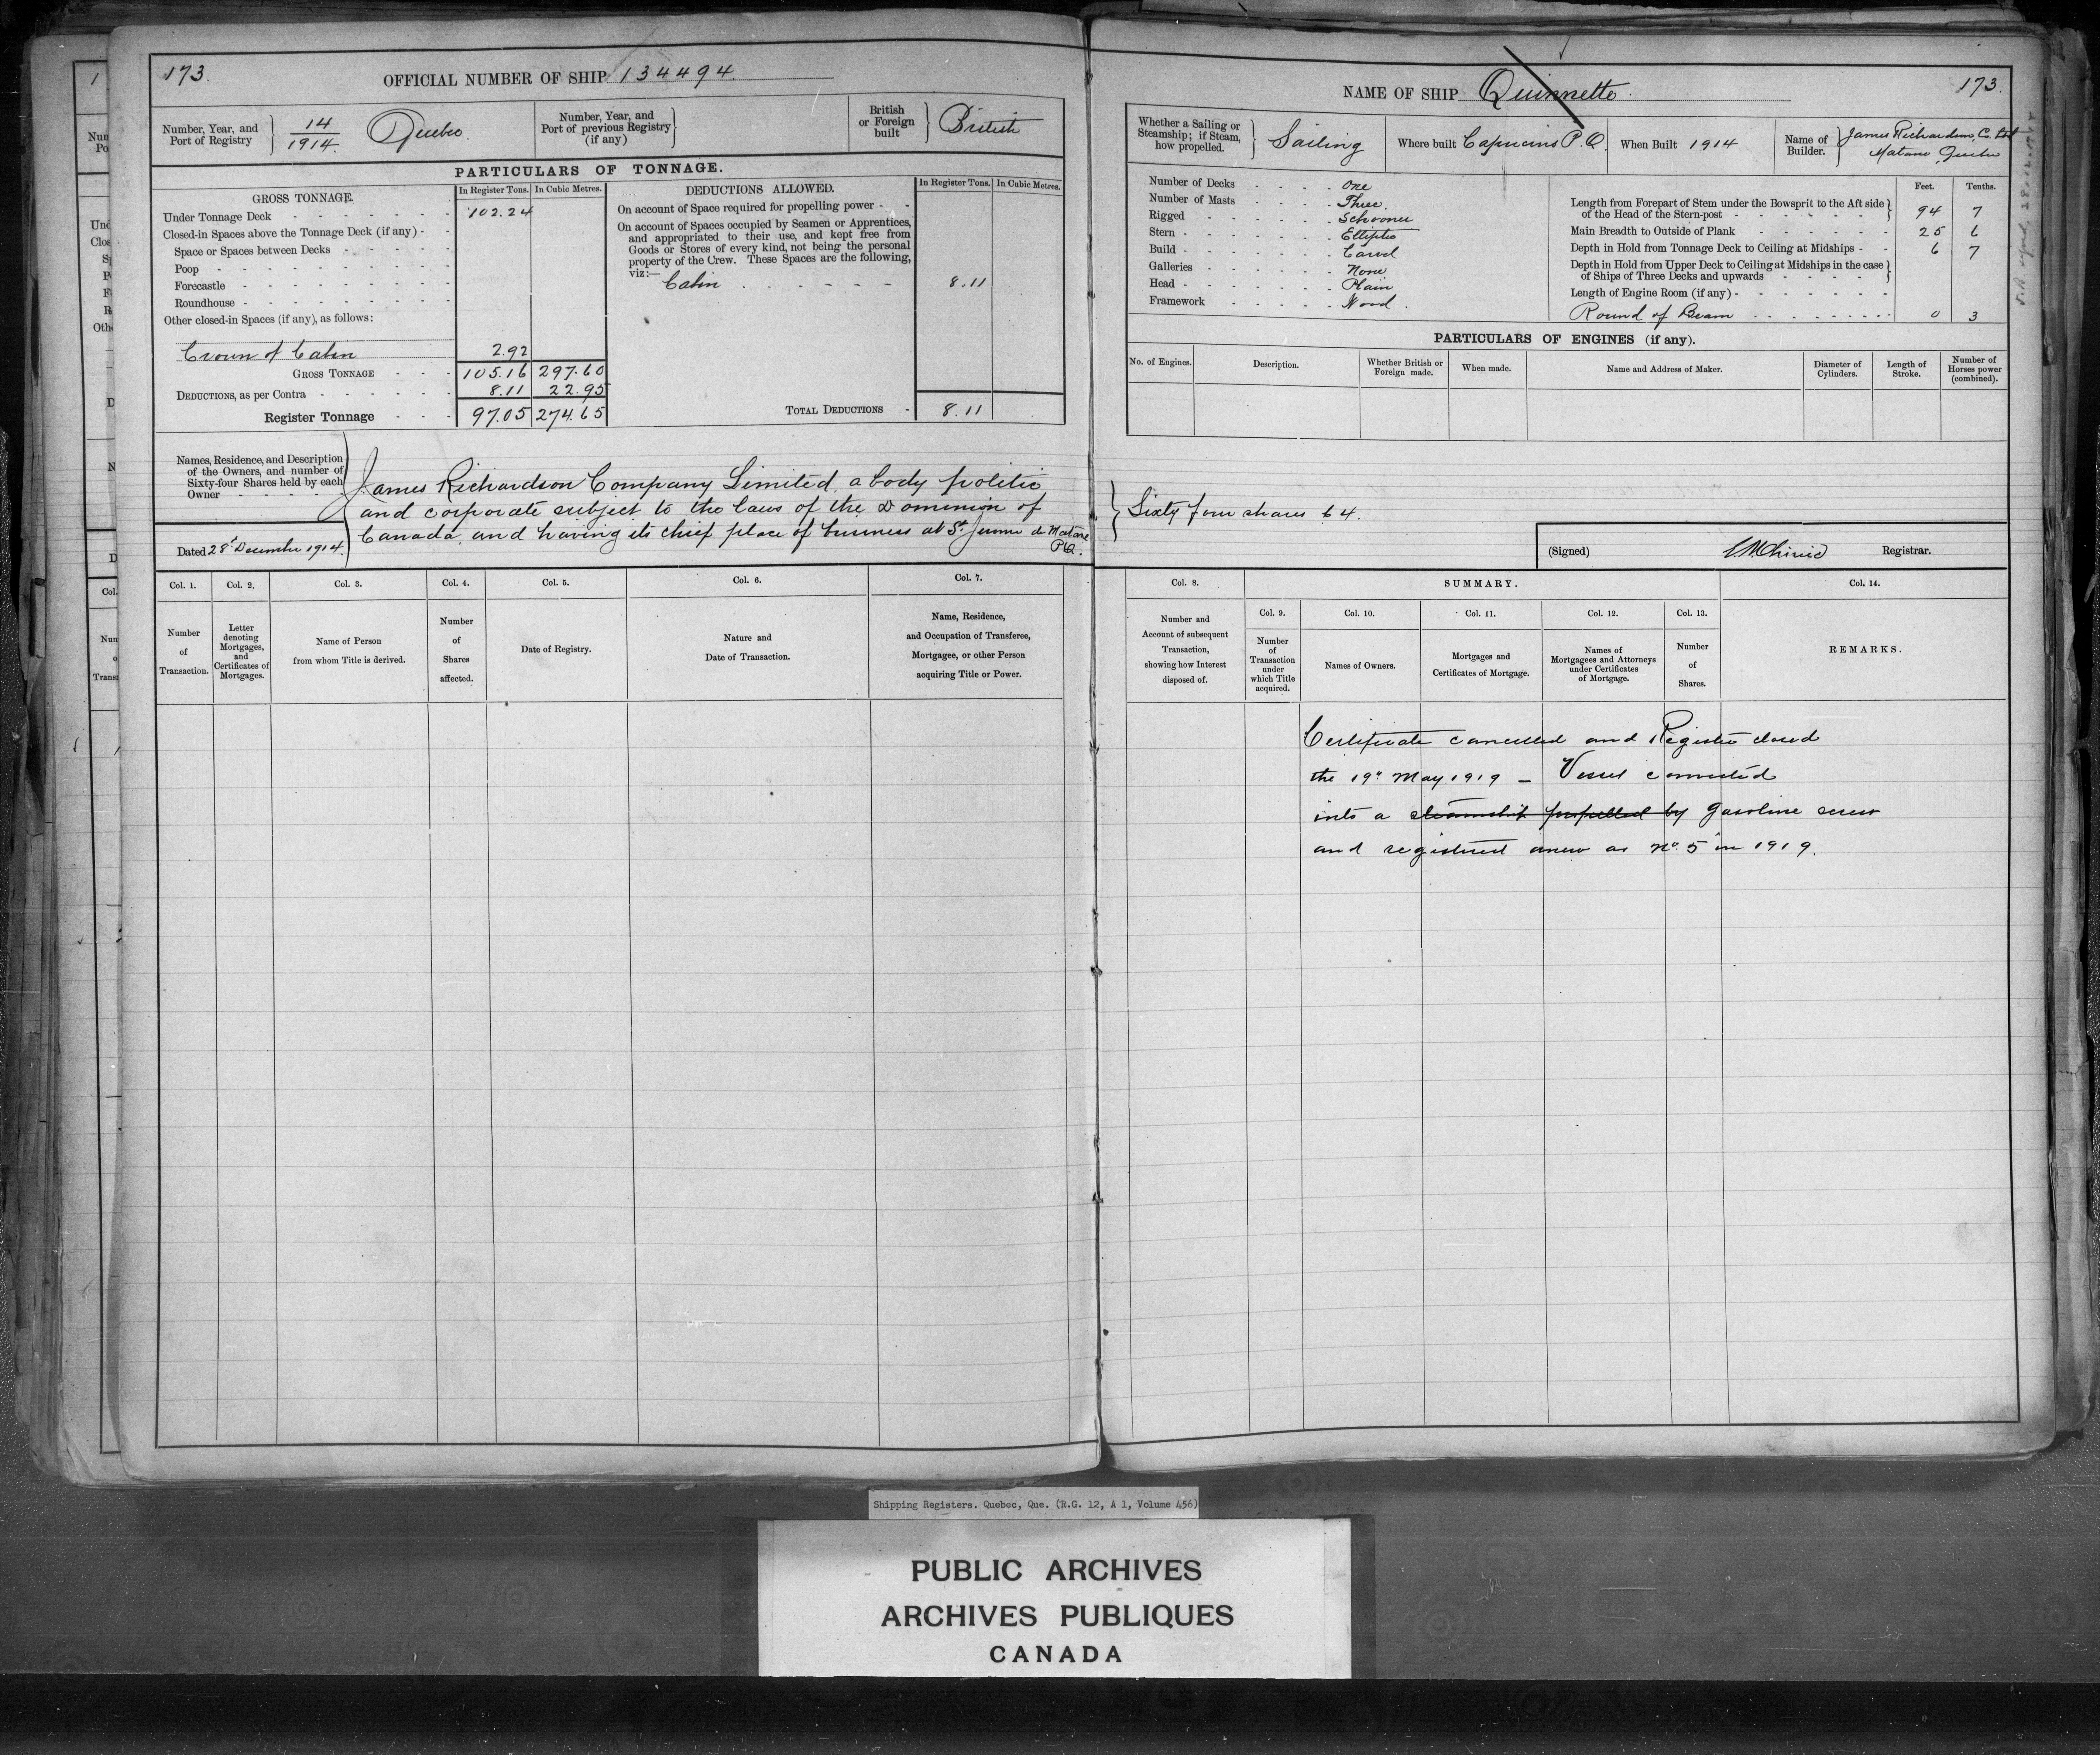 173.
OFFICIAL NUMBER OF SHIP 134494.
Number, Year, and
Port of Registry
14
1914.
Quebec.
Number, Year, and
Port of previous Registry
(if any)
British
or Foreign
built
British
PARTICULARS OF TONNAGE.
GROSS TONNAGE.
In Register Tons. In Cubic Metres.
Under Tonnage Deck 102.24
Closed-in Spaces above the Tonnage Deck (if any)
Space or Spaces between Decks
Poop
Forecastle
Roundhouse
Other closed-in Spaces (if any), as follows:
Crown of Cabin 2.92
GROSS TONNAGE 105.16 297.60
DEDUCTIONS, as per Contra 8.11 22.95
Register Tonnage 97.05 274.65
DEDUCTIONS ALLOWED.
In Register Tons. In Cubic Metres.
On account of Space required for propelling power
On account of Spaces occupied by Seamen or Apprentices,
and appropriated to their use, and kept free from
Goods or Stores of every kind, not being the personal
property of the Crew. These Spaces are the following,
viz:—
Cabin 8.11
TOTAL DEDUCTIONS 8.11
Names, Residence, and Description
of the Owners, and number of
Sixty-four Shares held by each
Owner
Dated 28th December 1914.
James Richardson Company Limited, a body politic
and corporate subject to the laws of the Dominion of
Canada, and having its chief place of business at St. Jerome de Matane
P.Q.
Col. 1.
Col. 2.
Col. 3.
Col. 4.
Col. 5.
Col. 6.
Col. 7.
Number
of
Transaction.
Letter
denoting
Mortgages,
and
Certificates of
Mortgages.
Name of Person
from whom Title is derived.
Number
of
Shares
affected.
Date of Registry.
Nature and
Date of Transaction.
Name, Residence,
and Occupation of Transferee,
Mortgagee, or other Person
acquiring Title or Power.
NAME OF SHIP Quinnette.
173.
Whether a Sailing or
Steamship; if Steam,
how propelled.
Sailing
Where built Capucins P.Q.
When Built 1914
Name of
Builder.
James Richardson, C. Ltd
Matane, Quebec
Number of Decks One
Number of Masts Three.
Rigged Schooner
Stern Elliptic
Build Carvel
Galleries None
Head Plain
Framework Wood.
Feet. Tenths.
Length from Forepart of Stem under the Bowsprit to the Aft side
of the Head of the Stern-post 94 7
Main Breadth to Outside of Plank 25 6
Depth in Hold from Tonnage Deck to Ceiling at Midships 6 7
Depth in Hold from Upper Deck to Ceiling at Midships in the case
of Ships of Three Decks and upwards
Length of Engine Room (if any)
Round of Beam 0 3
PARTICULARS OF ENGINES (if any).
No. of Engines.
Description.
Whether British or
Foreign made.
When made.
Name and Address of Maker.
Diameter of
Cylinders.
Length of
Stroke.
Number of
Horses power
(combined).
Sixty four shares 64.
(Signed)
Registrar.
Col. 8.
SUMMARY.
Col. 14.
Col. 9.
Col. 10.
Col. 11.
Col. 12.
Col. 13.
Number and
Account of subsequent
Transaction,
showing how Interest
disposed of.
Number
of
Transaction
under
which Title
acquired.
Names of Owners.
Mortgages and
Certificates of Mortgage.
Names of
Mortgagees and Attorneys
under Certificates
of Mortgage.
Number
of
Shares.
REMARKS.
Certificate cancelled and Register closed
the 19th May 1919 — Vessel converted
into a steamship propelled by gasoline screw
and registered anew as No. 5 in 1919.
Shipping Registers. Quebec, Que. (R.G. 12, A 1, Volume 456)
PUBLIC ARCHIVES
ARCHIVES PUBLIQUES
CANADA